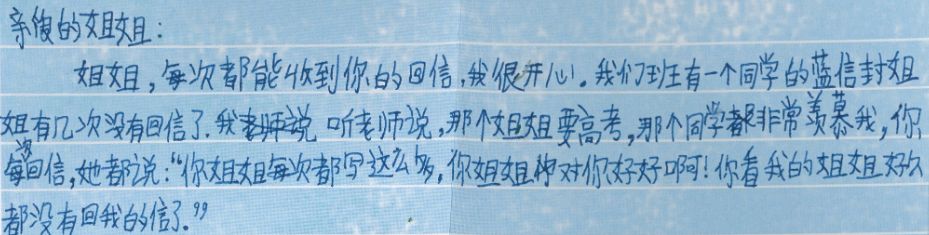 亲爱的姐姐:
姐姐,每次都能收到你的回信,我很开心。我们班有一个同学的蓝信封姐
姐有几次没有回信了.我听老师说,那个姐姐要高考,那个同学都非常羡慕我,你
每次回信,她都说:“你姐姐每次都写这么多,你姐姐对你好好啊!你看我的姐姐好久
都没有回我的信了.”